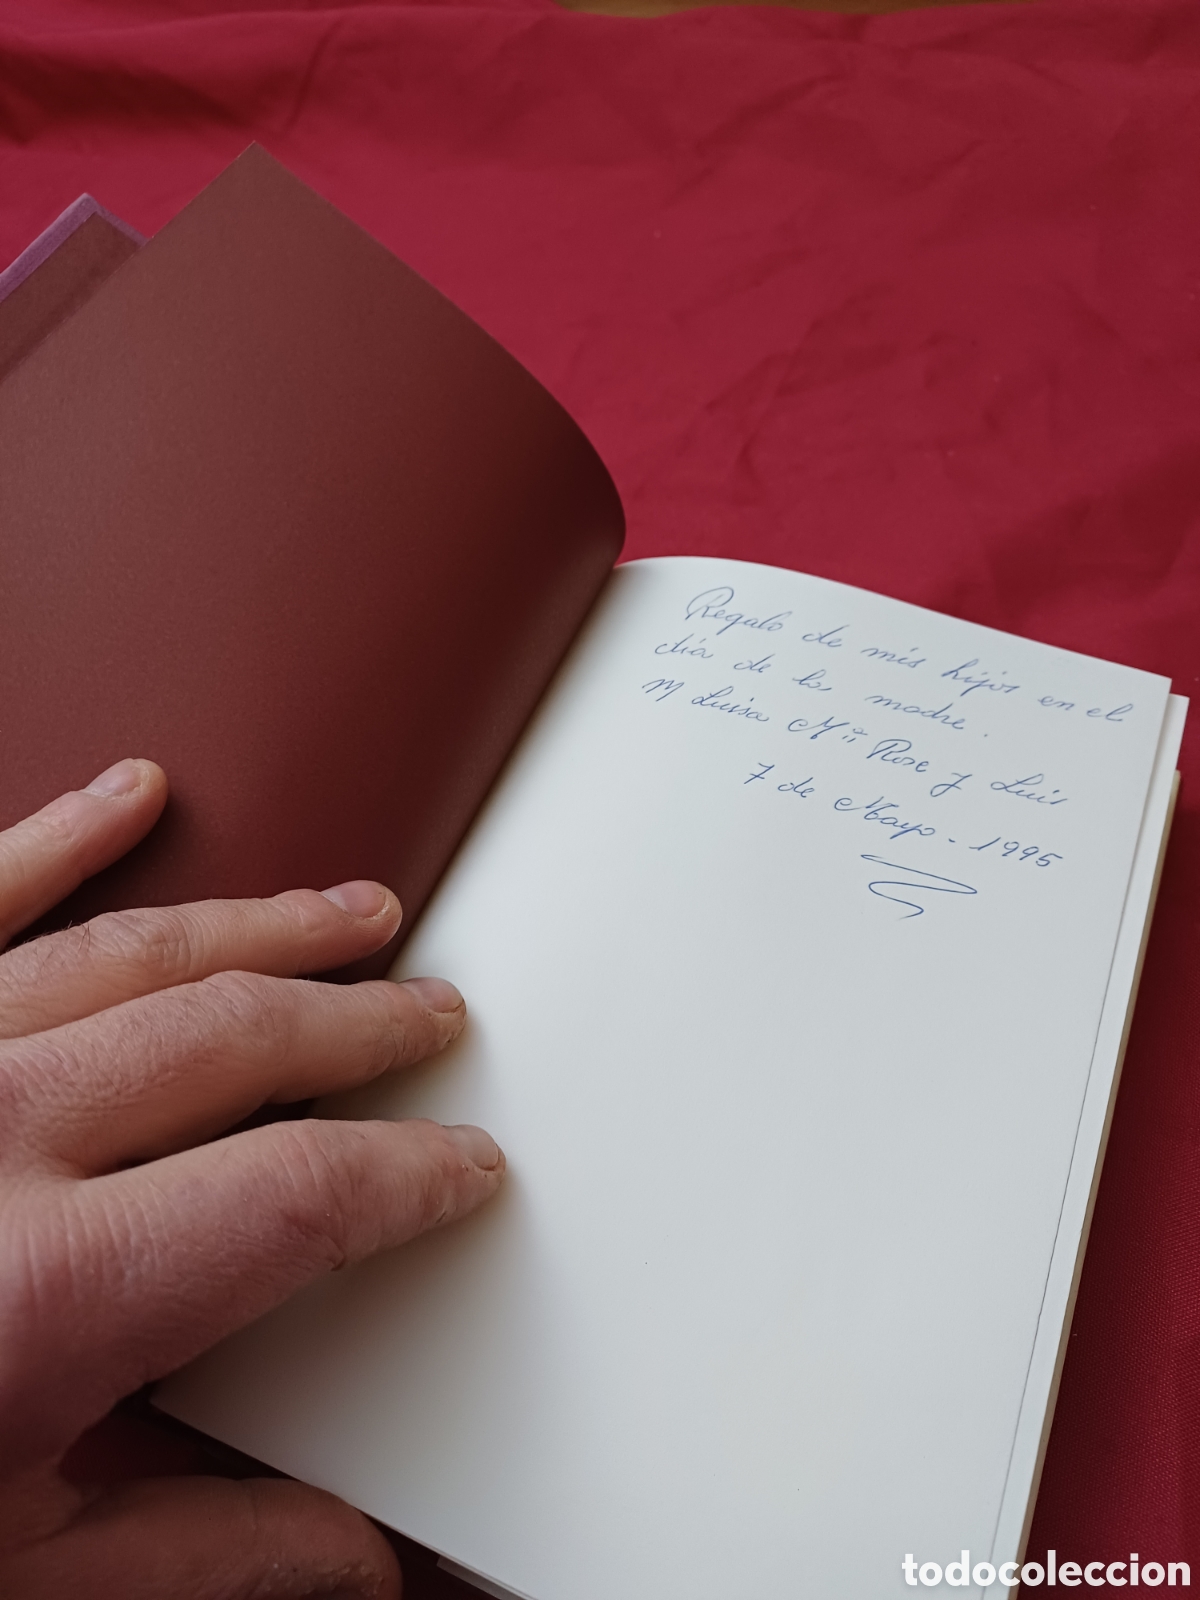 Regalo de mis hijos en el
día de la madre.
M Luisa Mª Rose y Luis
7 de Mayo - 1995
todocoleccion